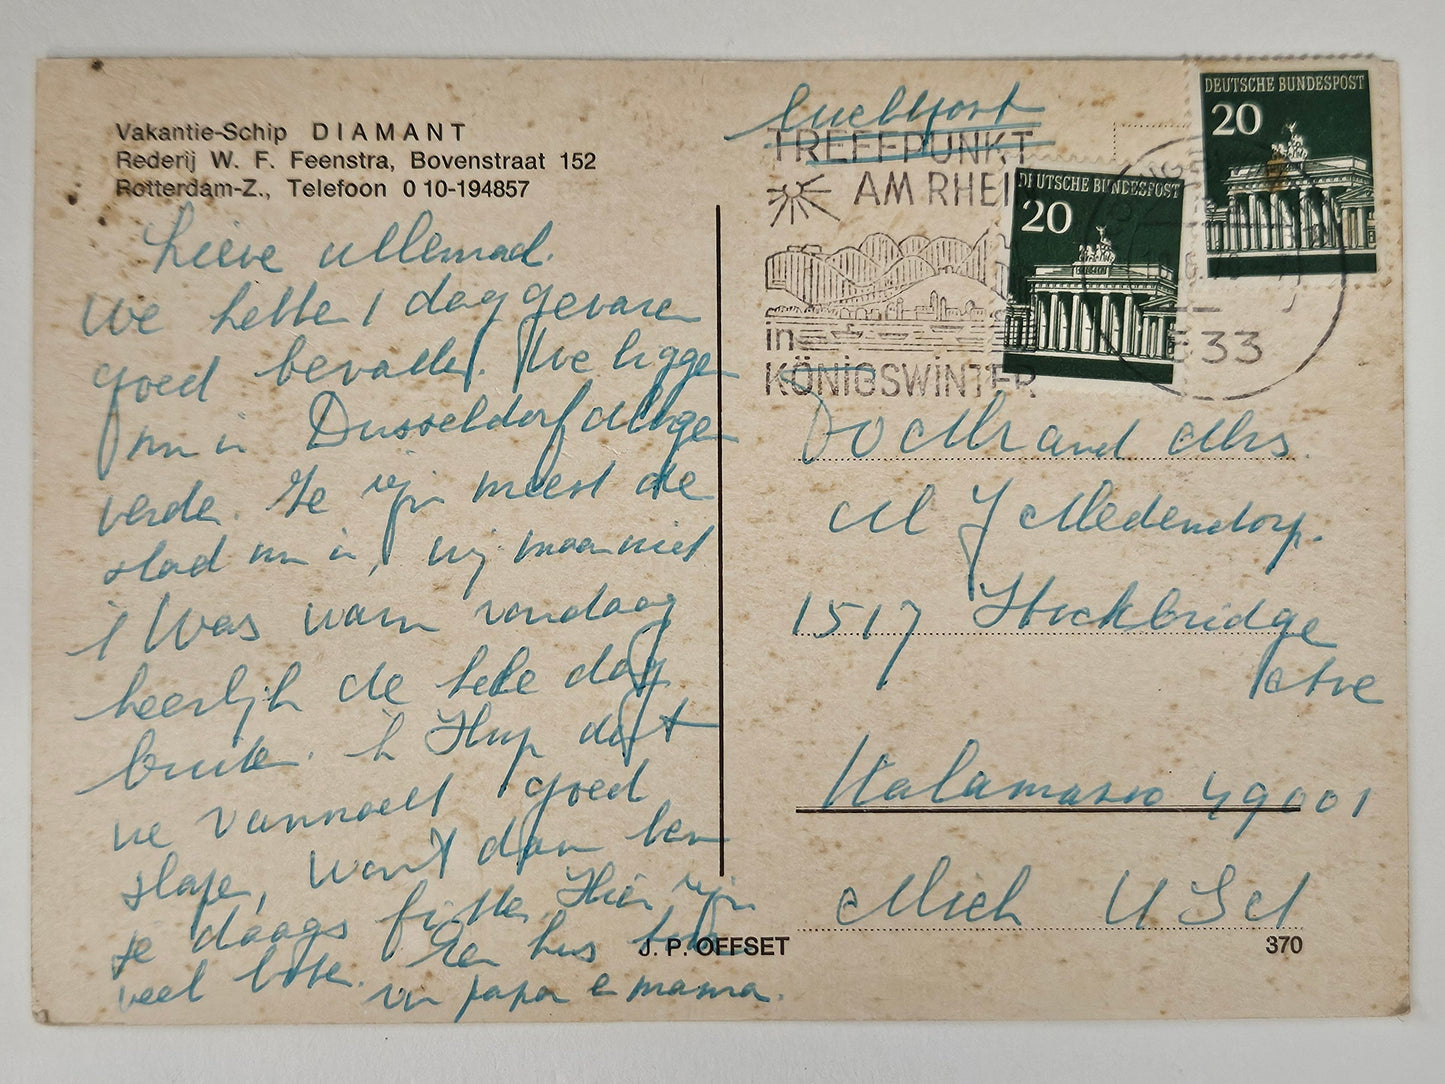 Vakantie-Schip DIAMANT
Rederij W. F. Feenstra, Bovenstraat 152
Rotterdam-Z., Telefoon 0 10-194857
Lieve allemaal.
We hebben 1 dag gevaren
goed bevallen. We liggen
nu in Dusseldorf
verder. Ze zijn meest de
stad nu in, wij maar niet
't Was warm vandaag
heerlijk de hele dag
buiten. Ik Hoop dat
we vannacht goed
slapen, want dan ben
je daags fitter. Hier zijn
veel boten. Een
van papa e mama.
Luchtpost
TREFFPUNKT
AM RHEIN
in
KÖNIGSWINTER
533
DEUTSCHE BUNDESPOST
20
DEUTSCHE BUNDESPOST
20
To Mr and Mrs.
M J Medendorp.
1517 Stockbridge
Ave
Kalamazoo 49001
Mich USA
J. P. OFFSET
370